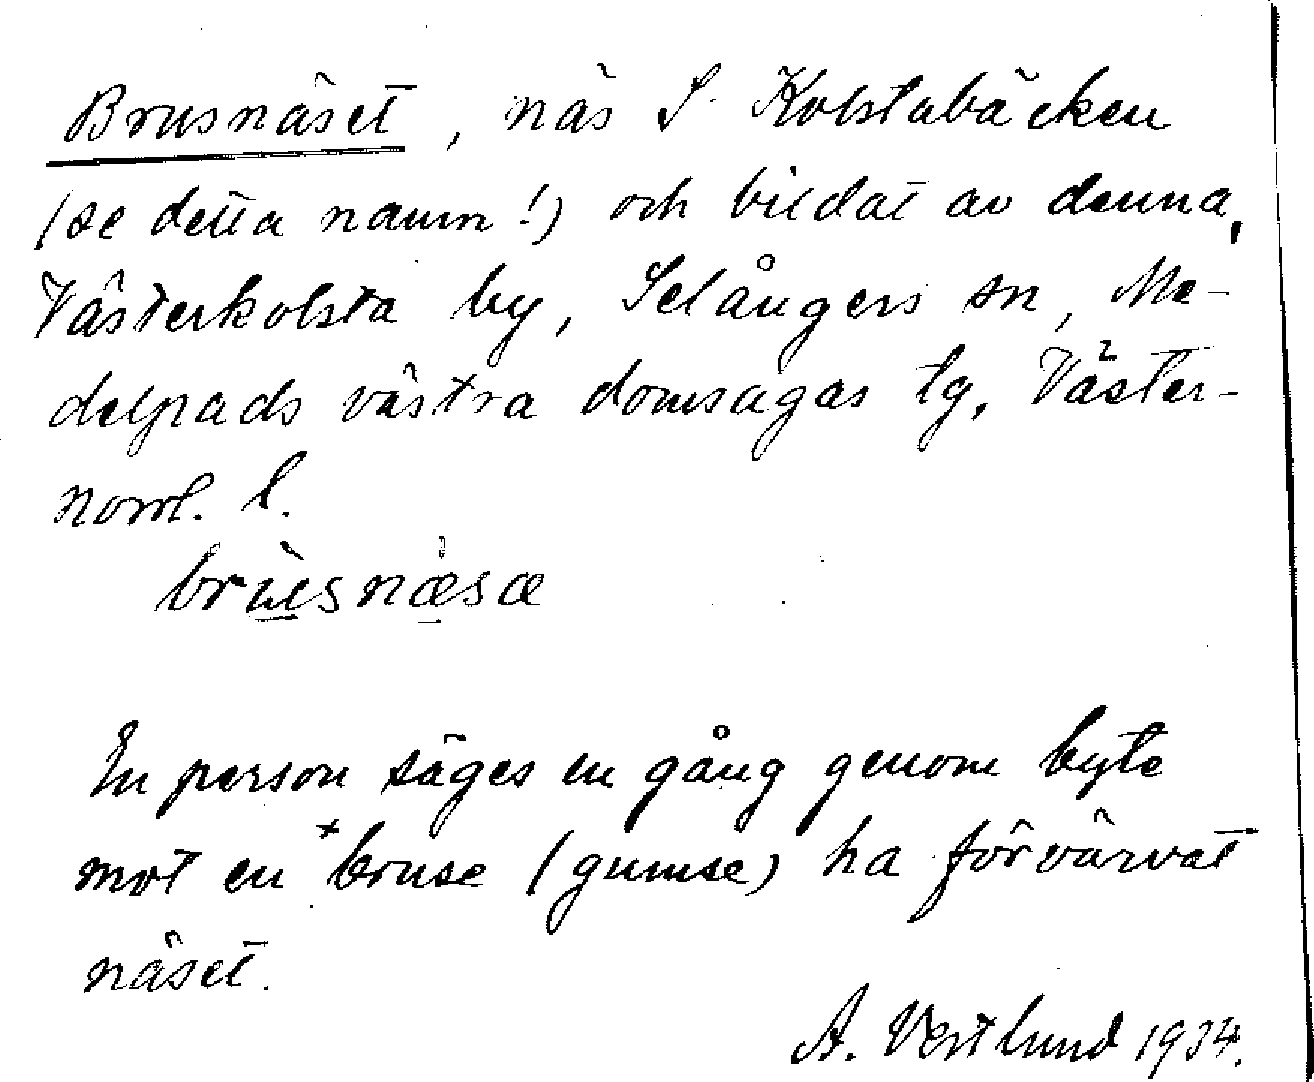 Brusnäset, näs S. Kolstabäcken
(se detta namn!) och bildat av denna,
Västerkolsta by, Selångers sn, Me-
delpads västra domsagas tg, Väster-
norrl. l.
brùsnæsæ
En person säges en gång genom byte
mot en ˣbruse (gumse) ha förvärvat
näset.
A. Vestlund 1934.